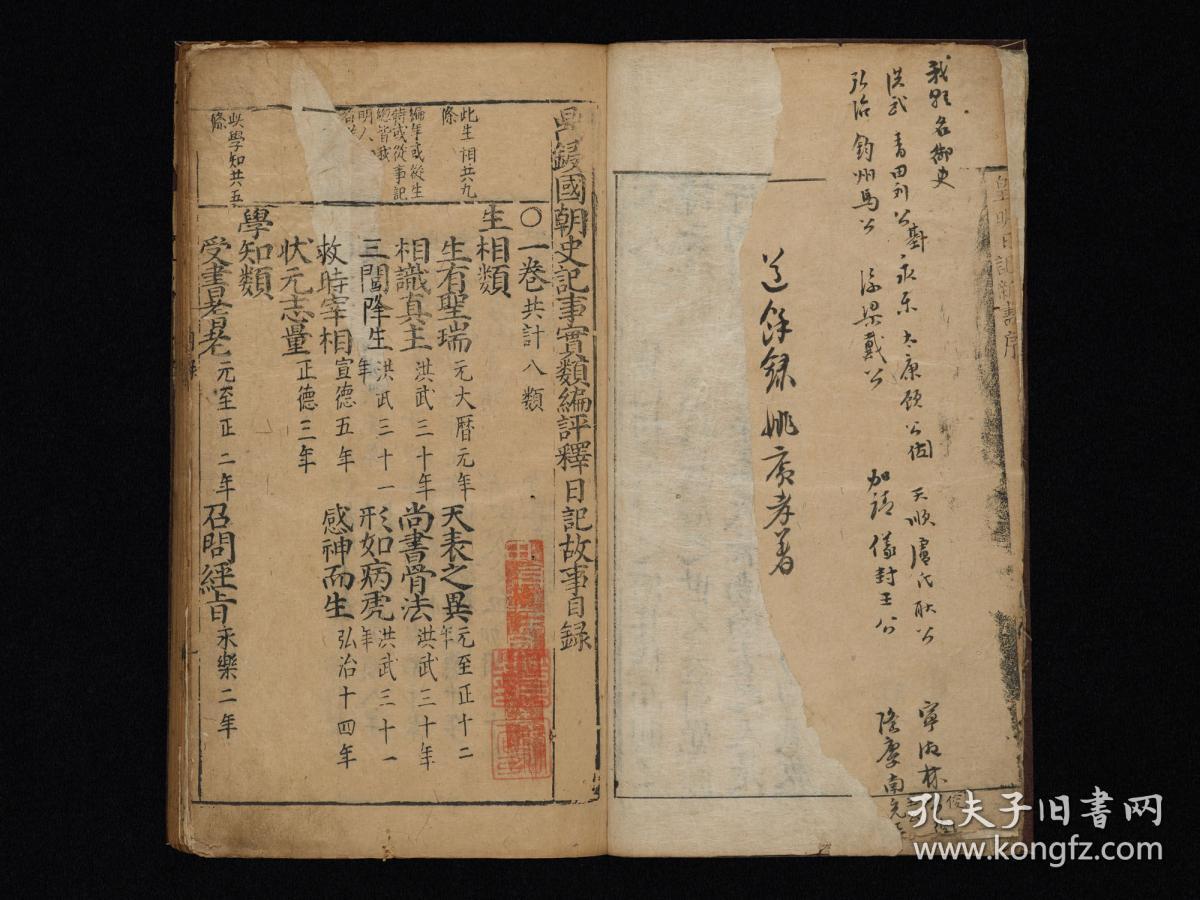 我朝名御史
洪武 青田刘公 永乐 太康顾公 天順 盧氏耿公
弘治 鈞州馬公 浮梁戴公 加靖 儀封王公
隆慶南
道餘録 姚廣孝著
鍥國朝史記事實類編評釋日記故事目録
〇一卷 共計八類
此生相共九條
生相類
編年或從生
特或從事記
總皆我
明人
生有聖瑞 元大曆元年 天表之異 元至正十二年
相識真主 洪武三十年 尚書骨法 洪武三十年
三閭降生 洪武三十一年 形如病虎 洪武三十一年
救時宰相 宣德五年 感神而生 弘治十四年
状元志量 正德三年
此學知共五條
學知類
受書老 元至正二年 召問經旨 永樂二年
孔夫子旧书网
www.kongfz.com